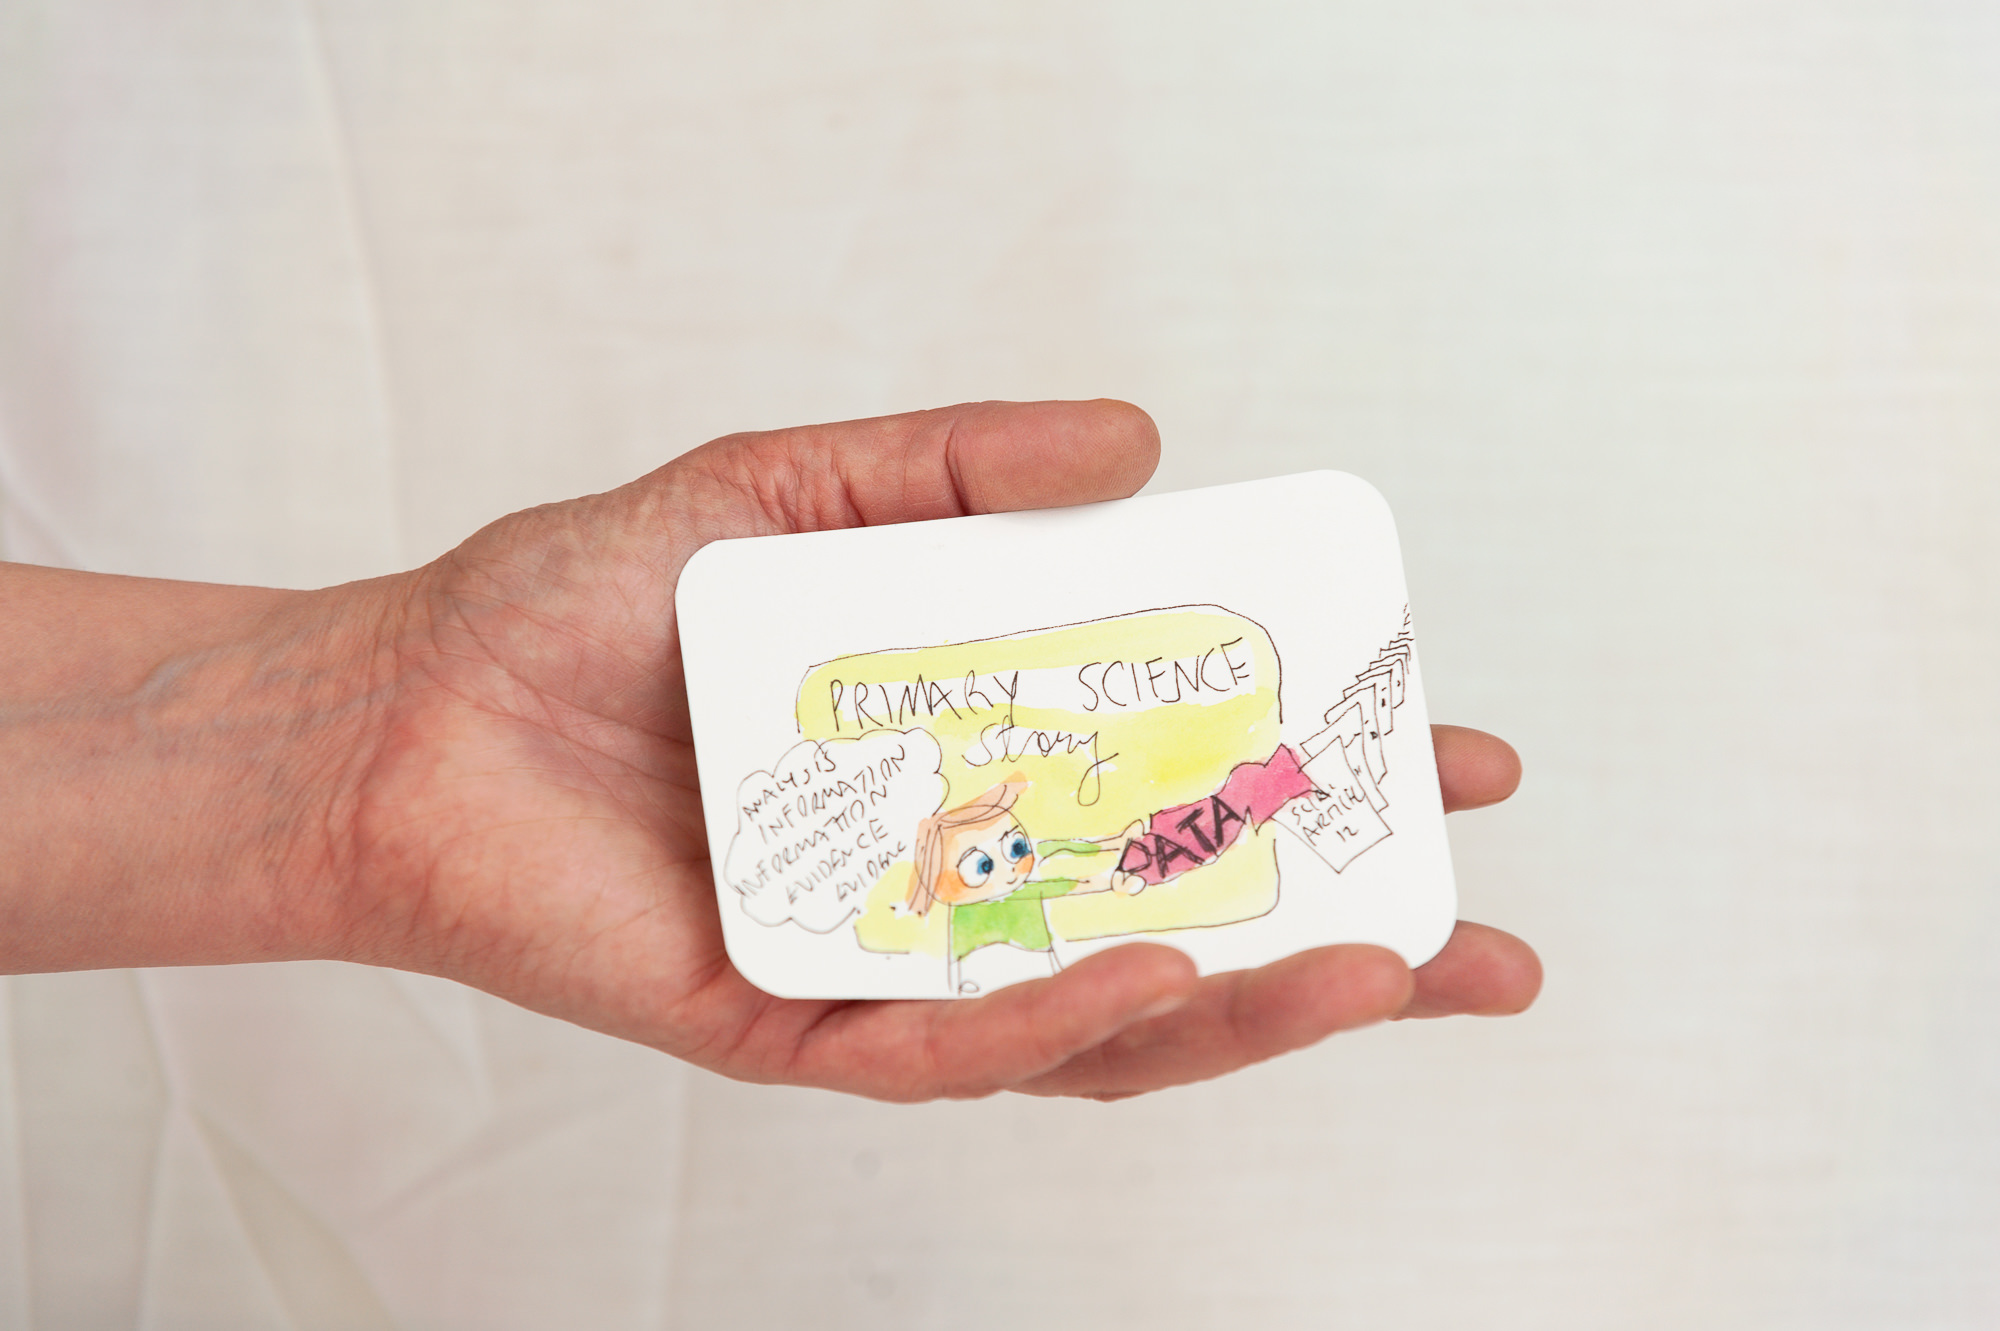 PRIMARY SCIENCE
story
ANALYSIS
INFORMATION
INFORMATION
EVIDENCE
EVIDENC
DATA
ARTICLE
12